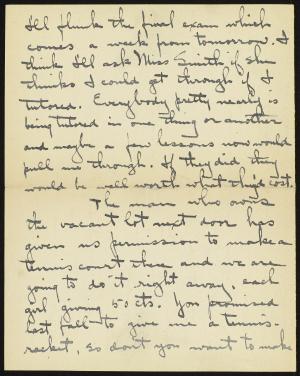 I'll flunk the final exam which
comes a week from tomorrow. I
think I'll ask Miss Smith if she
thinks I could get through if I
tutored. Everybody pretty nearly is
being tutored in one thing or another
and maybe a few lessons now would
pull me through. If they did they
would be well worth what they'd cost.
The man who owns
the vacant lot next door has
given us permission to make a
tennis court there and we are
going to do it right away, each
girl giving 50 cts. You promised
last fall to give me a tennis-
racket, so don't you want to make